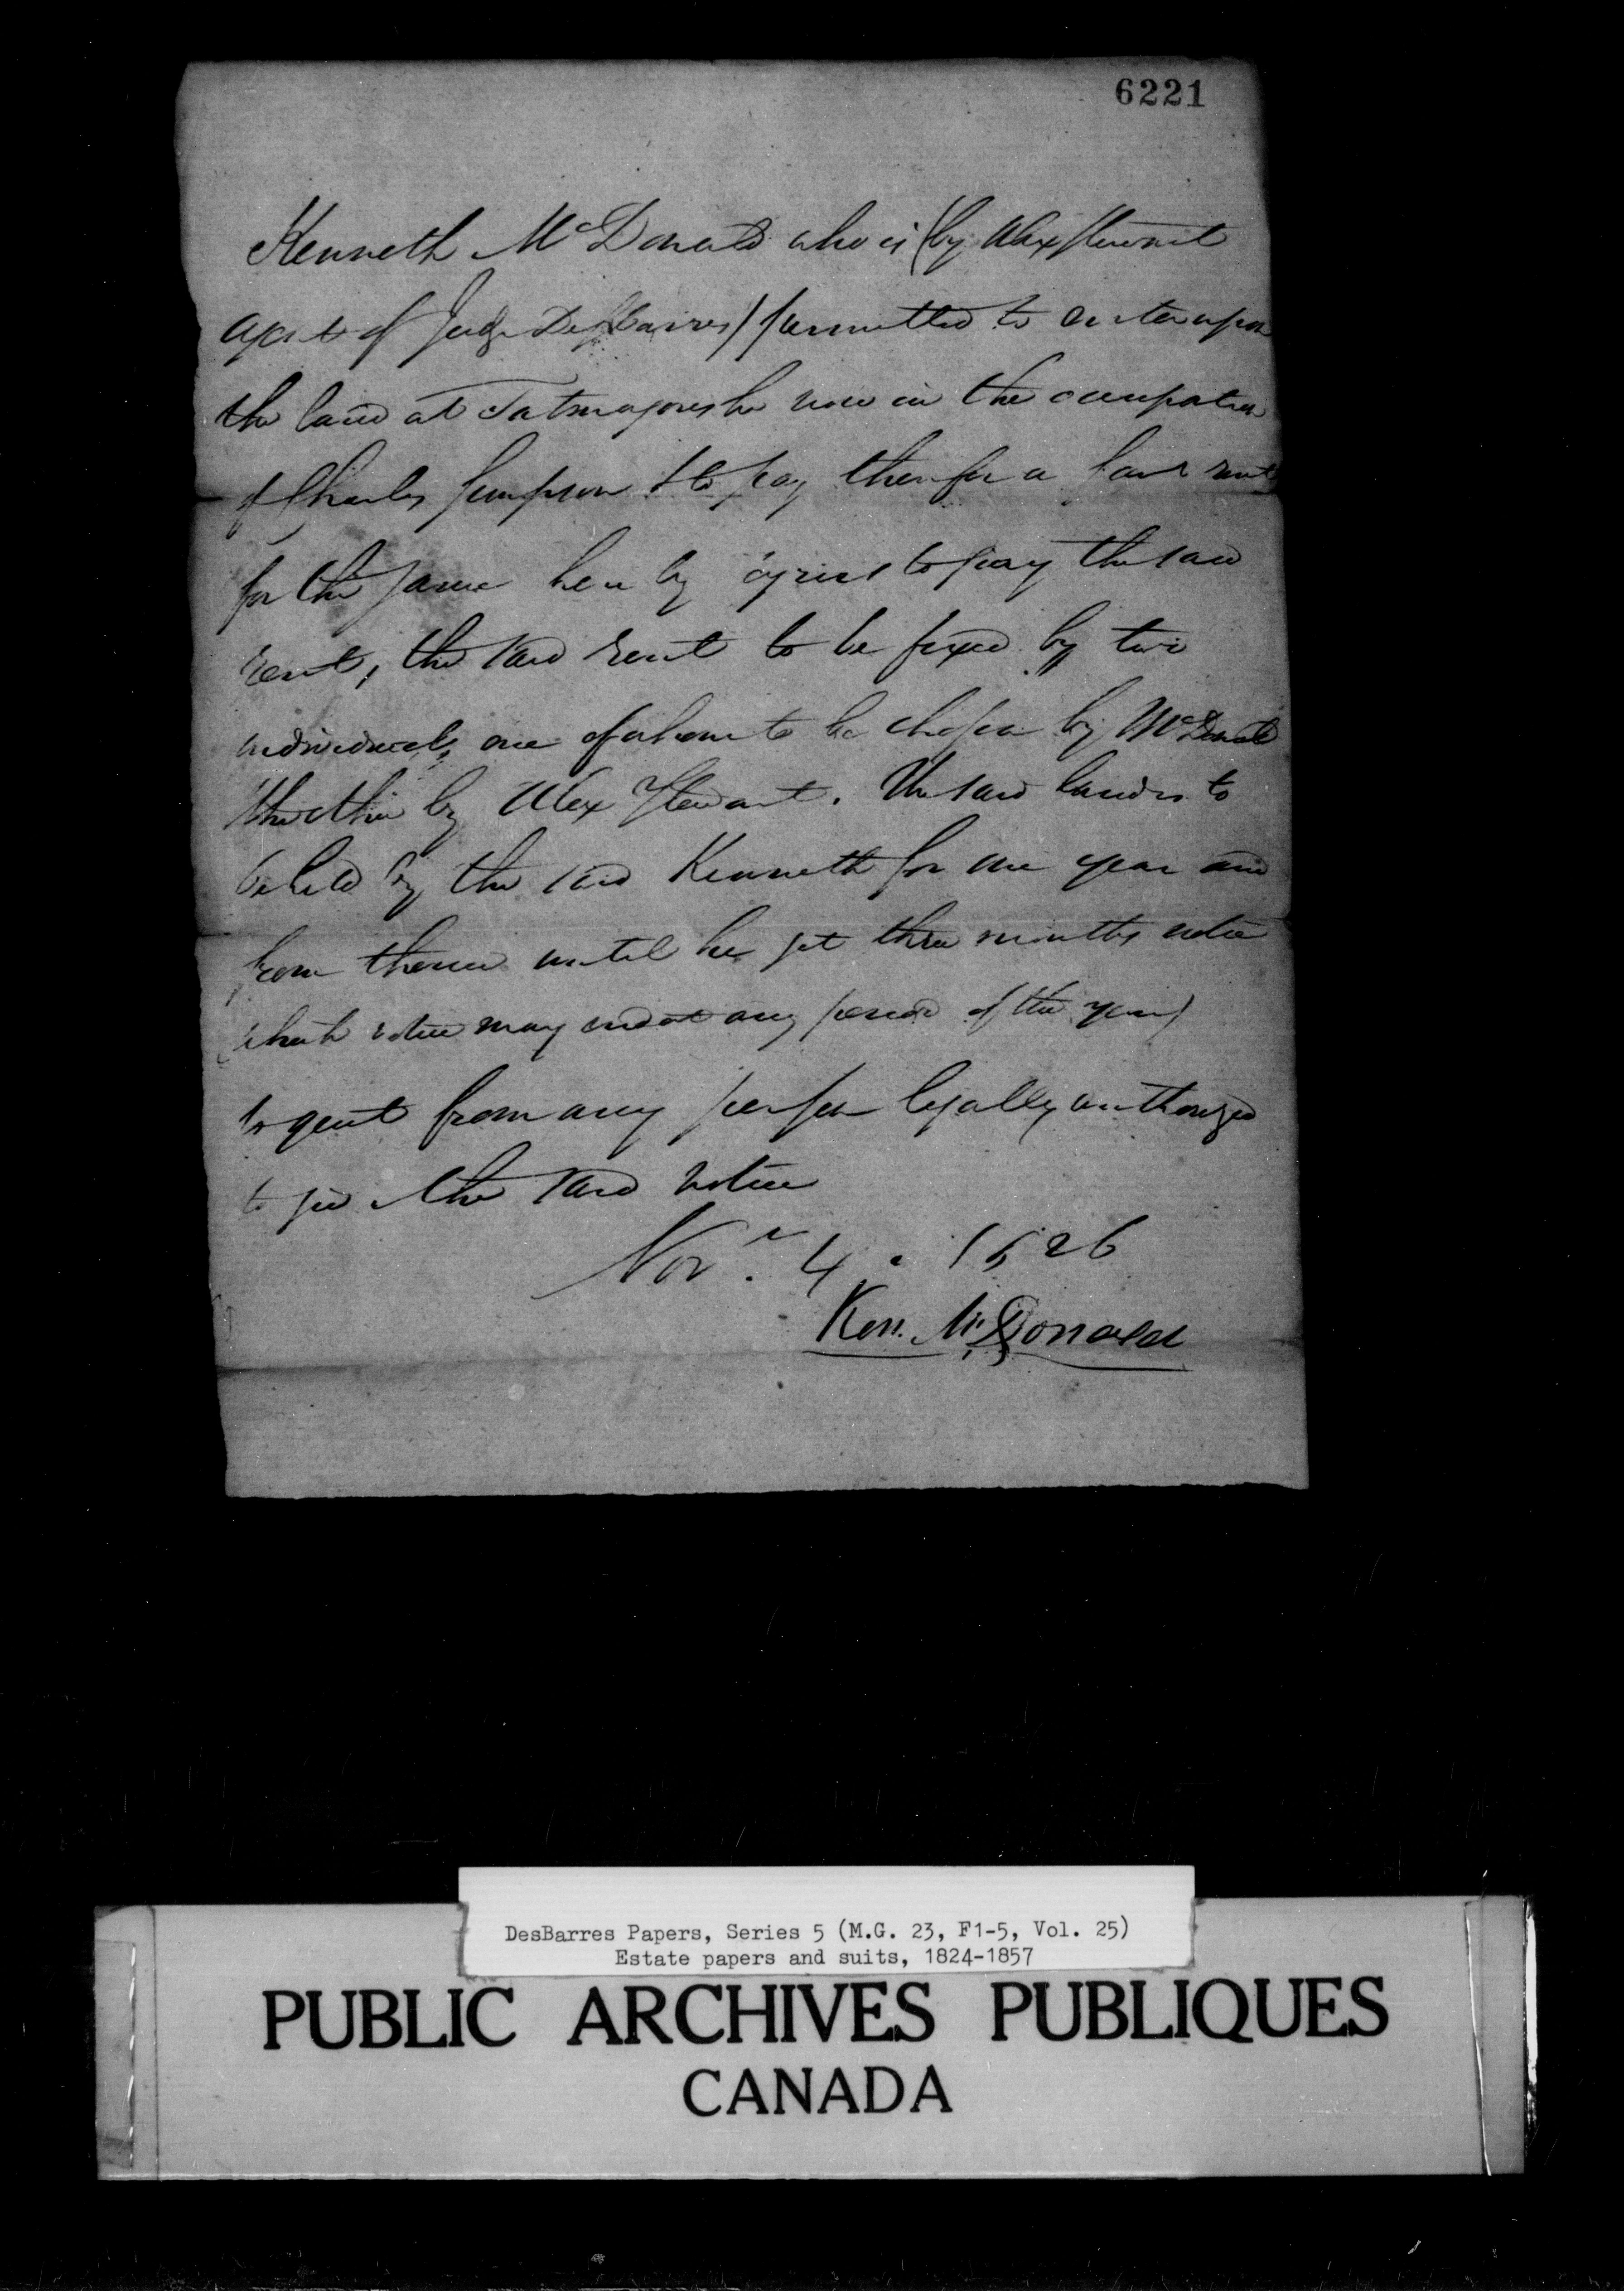 6221
Kenneth McDonald who is (by Alex Stewart
agent of Judge DesBarres) permitted to enter upon
the land at Tatmagoushe now in the occupation
of Charles Simpson & to pay therefor a fair rent
for the same hereby agrees to pay the said
rent, the said rent to be fixed by two
individuals, one of whom to be chosen by McDonald
the other by Alex Stewart. The said land is to
be held by the said Kenneth for one year and
from thence until he get three months notice
(which notice may end at any period of the year)
to quit from any person legally authorized
to give the said notice
Novr. 4. 1826
Ken. McDonald
DesBarres Papers, Series 5 (M.G. 23, F1-5, Vol. 25)
Estate papers and suits, 1824-1857
PUBLIC ARCHIVES PUBLIQUES
CANADA